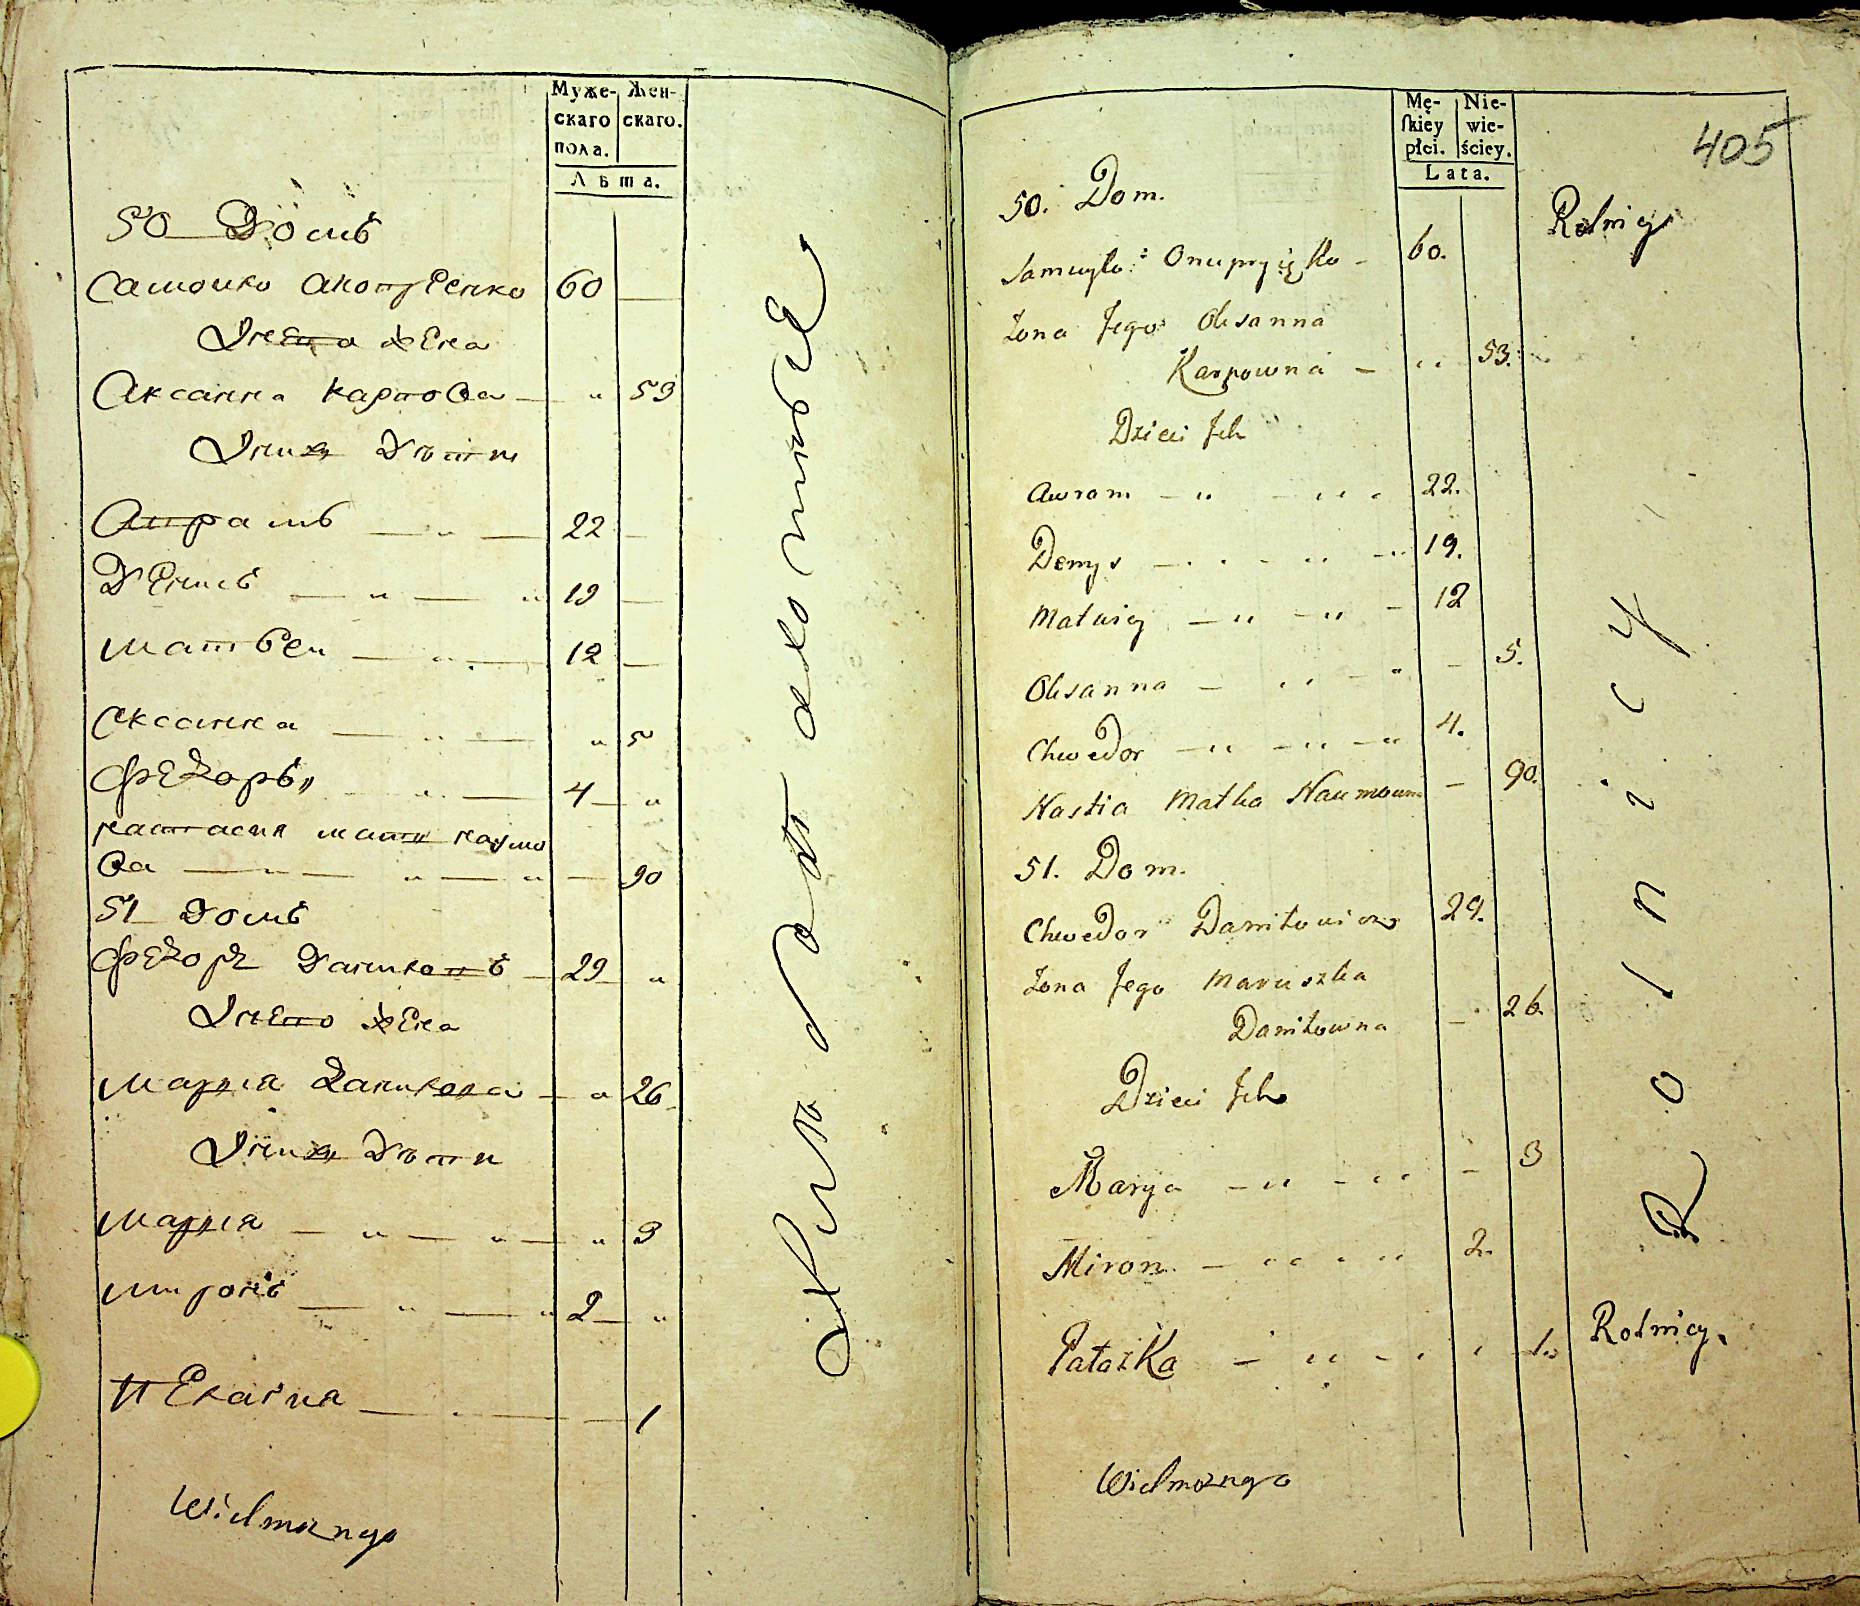 Муже-
скаго
пола.
Жен-
скаго.
Лѣта.
50 Домъ
Самойло 60
Жена
Аксанна Карпова — „ 53
Ихъ Дѣти
Аврамъ — „ — 22 —
Денисъ — „ — „ 19 —
Матвей — „ — 12 —
Аксанна — „ — „ 5
Федоръ — „ — 4 — „
Настасия мати Наумо
ва — „ — „ — „ — 90
51 Домъ
Федоръ Даниловъ — 29 — „
Жена
Мария Данилова — „ 26
Ихъ Дѣти
Мария — „ — „ — „ 3
Миронъ — „ — „ 2 — „
Пелагия — 1
Wielmożnego
Mę-
skiey
płci.
Nie-
wie-
ściey.
Lata.
405
50. Dom.
Rolnicy
Samuyło 60.
Żona Jego Oksanna
Karpowna — „ 53.
Dzieci Ich
Awram — „ — „ 22.
Denys — „ — „ — „ 19.
Matwiey — „ — „ — 12
Oksanna — „ — „ — 5.
Chwedor — „ — „ — „ 4.
Nastia Matka Naumowna — 90.
51. Dom.
Chwedor Daniłowicz 29.
Żona Jego Maruszka
Daniłowna — 26.
Dzieci Ich
Marya — „ — „ — 3
Miron — „ „ 2.
Pałażka — „ — „ 1.
Rolnicy.
Rolnicy
Wielmożnego